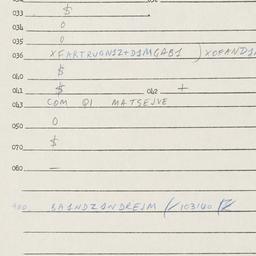 033 $
034 0
035 0
036 XFARTRUGN1Z+D1MGAB1
040 $
041 $ 042 +
043 COM QI MATSEJVE
050 0
070 $
080 —
900 BA1NDZ1NDREJM 103140